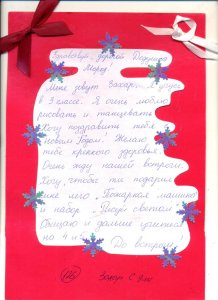 Здравствуй, дорогой Дедушка
Мороз.
Меня зовут Захар. Я учусь
в 3 классе. Я очень люблю
рисовать и танцевать.
Хочу поздравить тебя
с Новым Годом! Желаю
тебе крепкого здоровья.
Очень жду нашей встречи.
Хочу, чтобы ты подарил
мне лего „Пожарная машина"
и набор „Рисуй светом".
Обещаю и дальше учиться
на 4 и
До встречи!
Захар С.